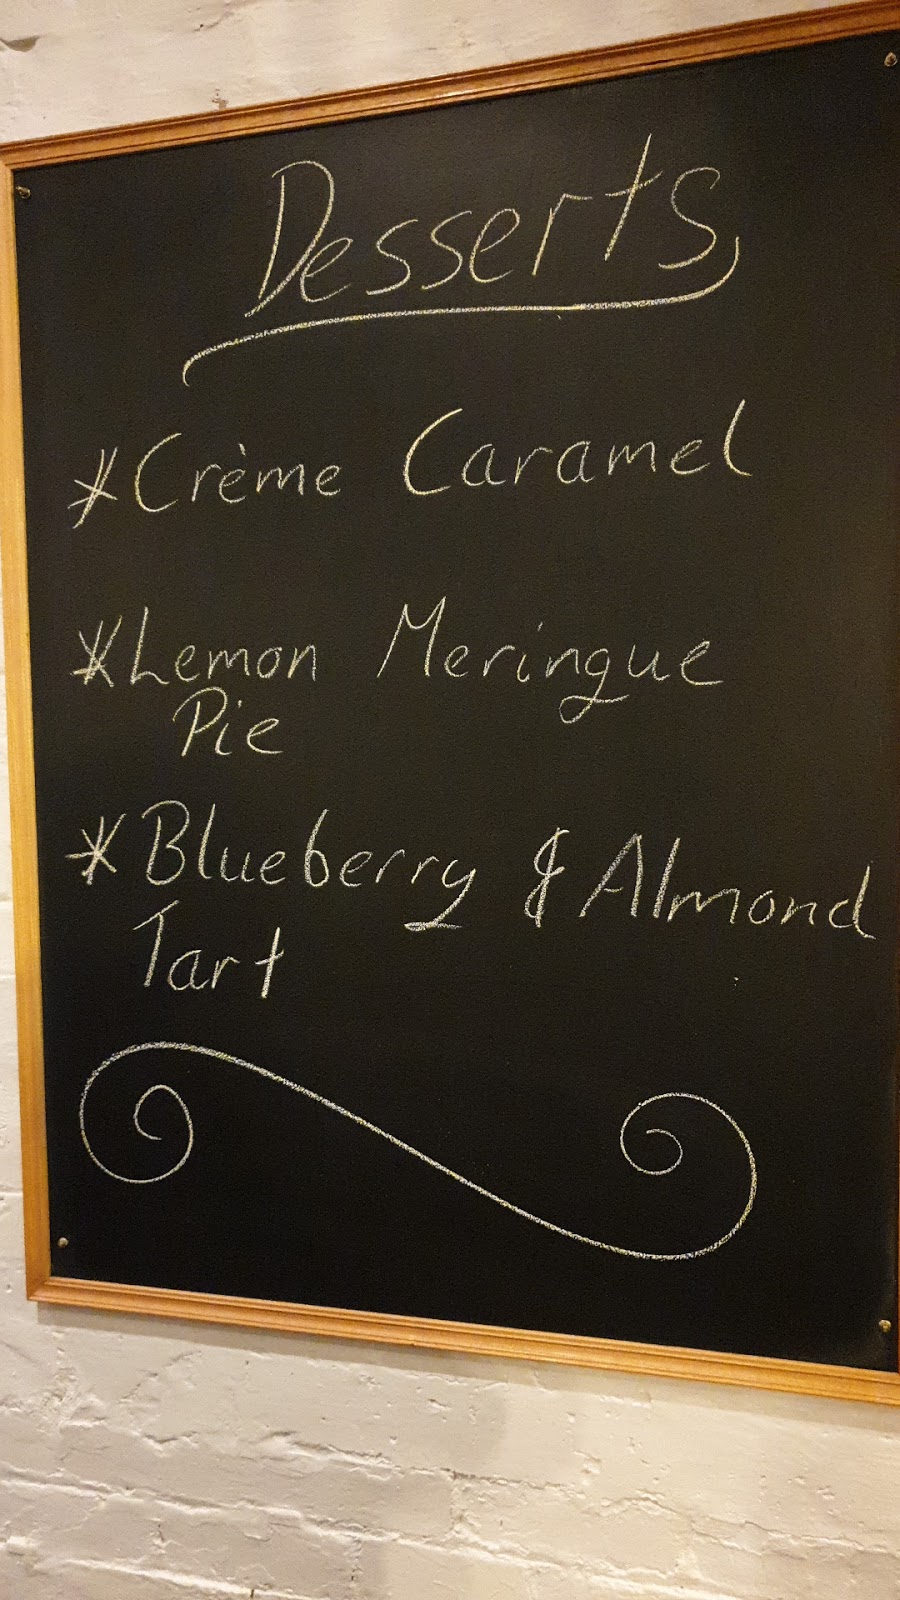 Desserts
*Crème Caramel
*Lemon Meringue
Pie
*Blueberry & Almond
Tart